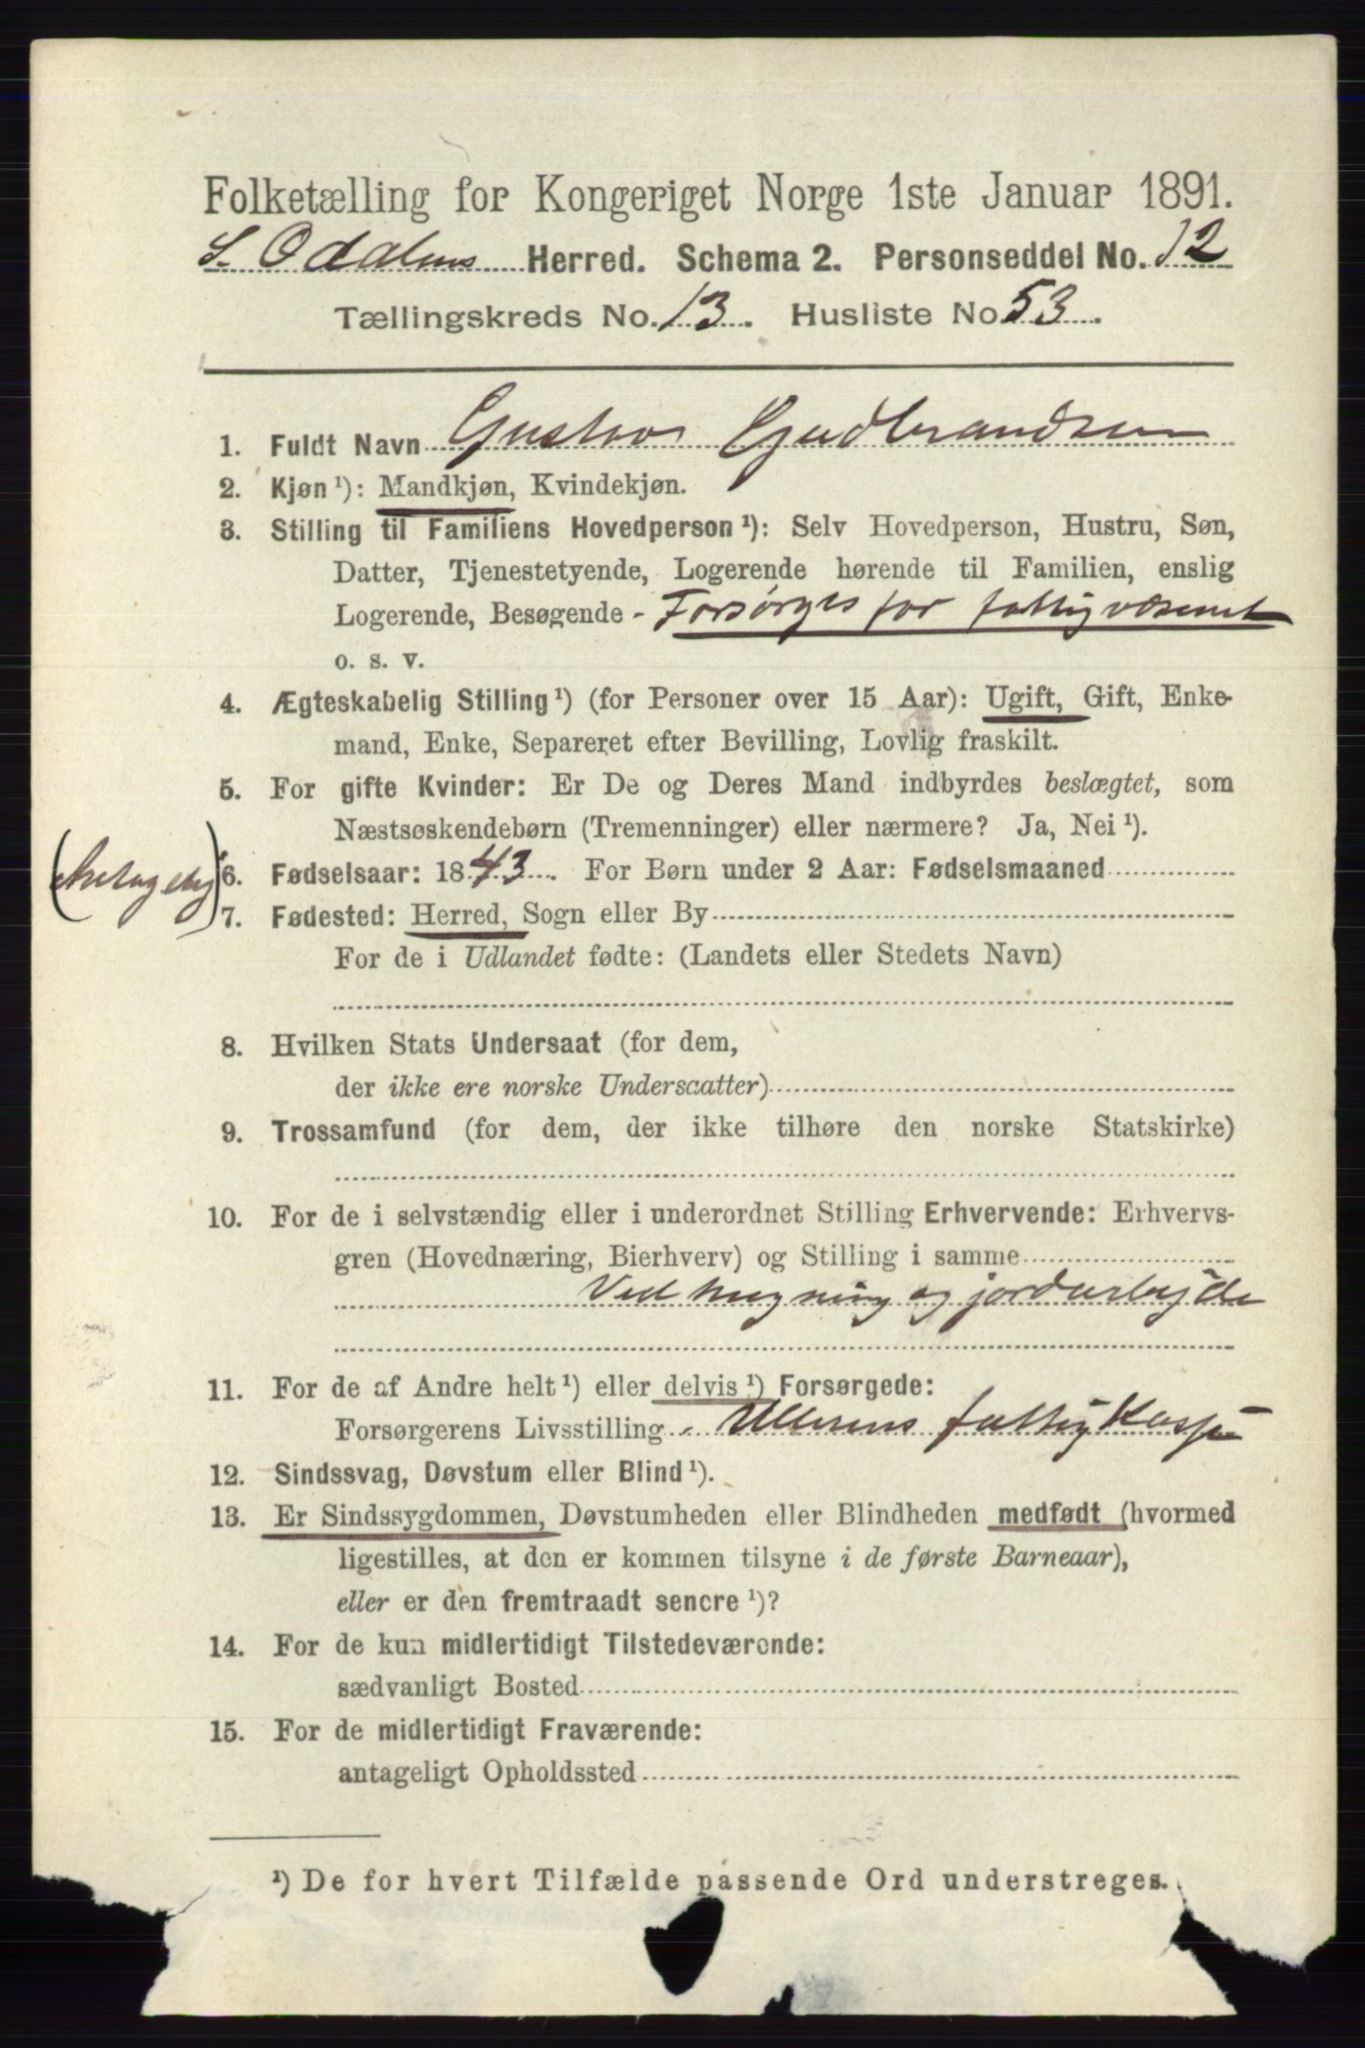 Folketælling for Kongeriget Norge 1ste Januar 1891.
S. Odalens Herred. Schema 2. Personseddel No. 12
Tællingskreds No. 13. Husliste No 53.
1. Fuldt Navn Gustav Gudbrandsen
2. Kjøn ¹): Mandkjøn, Kvindekjøn.
3. Stilling til Familiens Hovedperson ¹): Selv Hovedperson, Hustru, Søn,
Datter, Tjenestetyende, Logerende hørende til Familien, enslig
Logerende, Besøgende - Forsørges for fattigvæsenet
o. s. v.
4. Ægteskabelig Stilling ¹) (for Personer over 15 Aar): Ugift, Gift, Enke-
mand, Enke, Separeret efter Bevilling, Lovlig fraskilt.
5. For gifte Kvinder: Er De og Deres Mand indbyrdes beslægtet, som
Næstsøskendebørn (Tremenninger) eller nærmere? Ja, Nei ¹).
(Antagelig) 6. Fødselsaar: 1843. For Børn under 2 Aar: Fødselsmaaned
7. Fødested: Herred, Sogn eller By
For de i Udlandet fødte: (Landets eller Stedets Navn)
8. Hvilken Stats Undersaat (for dem,
der ikke ere norske Undersaatter)
9. Trossamfund (for dem, der ikke tilhøre den norske Statskirke)
10. For de i selvstændig eller i underordnet Stilling Erhvervende: Erhvervs-
gren (Hovednæring, Bierhverv) og Stilling i samme
Vedhugning og jordarbejde
11. For de af Andre helt ¹) eller delvis ¹) Forsørgede:
Forsørgerens Livsstilling Ullerens fattig Kasse
12. Sindssvag, Døvstum eller Blind ¹).
13. Er Sindssygdommen, Døvstumheden eller Blindheden medfødt (hvormed
ligestilles, at den er kommen tilsyne i de første Barneaar),
eller er den fremtraadt senere ¹)?
14. For de kun midlertidigt Tilstedeværende:
sædvanligt Bosted
15. For de midlertidigt Fraværende:
antageligt Opholdssted
¹) De for hvert Tilfælde passende Ord understreges.